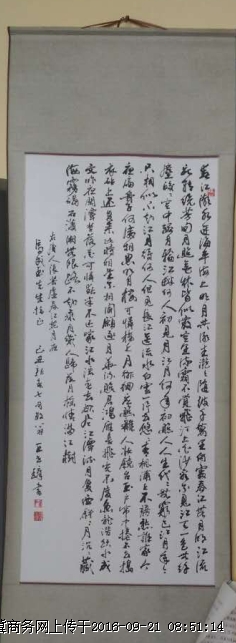 春江潮水连海平海上明月共潮生滟滟随波千万里何处春江无月明江流
宛转绕芳甸月照花林皆似霰空里流霜不觉飞汀上白沙看不见江天一色无纤
尘皎皎空中孤月轮江畔何人初见月江月何年初照人人生代代无穷已江月年年
只相似不知江月待何人但见长江送流水白云一片去悠悠青枫浦上不胜愁谁家今
夜扁舟子何处相思明月楼可怜楼上月徘徊应照离人妆镜台玉户帘中卷不去捣
衣砧上拂还来此时相望不相闻愿逐月华流照君鸿雁长飞光不度鱼龙潜跃水成
文昨夜闲潭梦落花可怜春半不还家江水流春去欲尽江潭落月复西斜斜月沉沉藏
海雾碣石潇湘无限路不知乘月几人归落月摇情满江树
右唐人张若虚春江花月夜
先生指正
商务网上传于2016-09-21 08:51:14